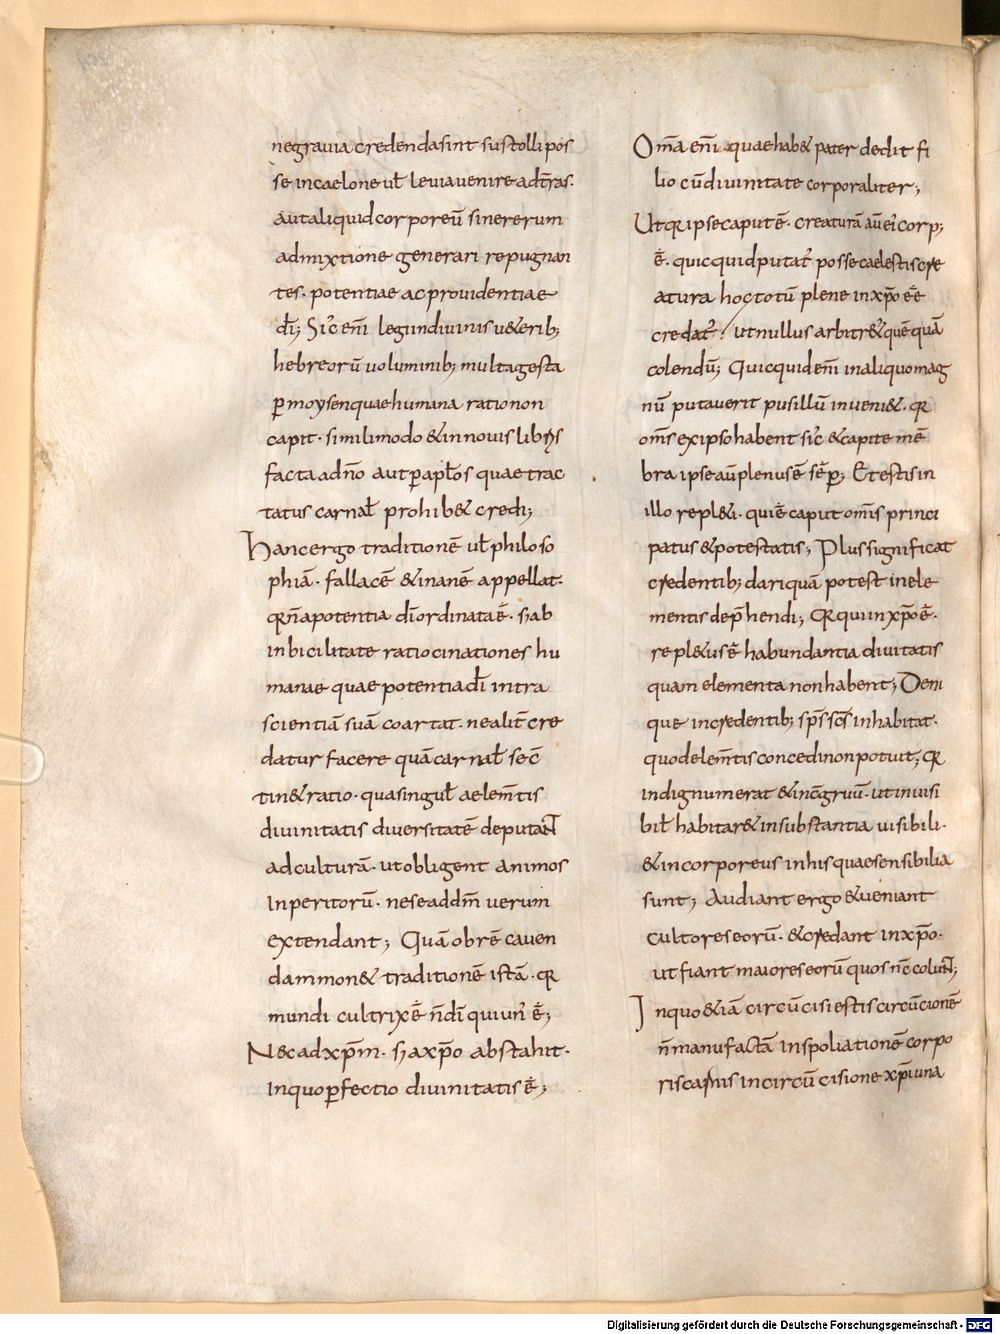 negrauia credenda sint sustolli pos
se in caelo ne ul̄ leuia uenire ad t̄ras.
aut aliquid corporeū sine rerum
admixtione generari repugnan
tes. potentiae ac prouidentiae
dī; Sic̄ enī legundiuinis u&erib;
hebreorū uoluminib; multa gesta
ꝑ moysen quae humana ratio non
capit. simili modo & in nouis libris
facta a dn̄o aut ꝑ apl̄os quae trac
tatus carnal̄ prohib& credi;
Hanc ergo traditionē ul̄ philoso
phiā. fallacē & inanē appellat.
qR n̄ a potentia dī ordinata ē. s; ab
inbicilitate ratiocinationes hu
manae quae potentia dī intra
scientiā suā coartat. ne alit̄ cre
datur facere quā carnal̄ sec̄
tin& ratio. qua singul̄ aelem̄tis
diuinitatis diuersitatē deputaNT
ad culturā. ut obligent animos
inperitorū. ne se ad dm̄ uerum
extendant; Quā ob rē cauen
dam mon& traditionē istā. qR
mundi cultrix ē n̄ dī qui un' ē;
Nec ad xp̄m. s; a xp̄o abstahit.
in quo ꝑfectio diuinitatis ē;
Om̄a enī quae hab& pater dedit fi
lio cū diuinitate corporaliter;
Ut qR ipse caput ē. creaturā aū ei' corp;
ē. quicquid putat' posse caelestis cre
atura hoc totū plene in xp̄o ēē
credat'. ut nullus arbitr& quē quā
colendū; Quicquid enī in aliquo mag
nū putauerit pusillū inueni&. qR
om̄s ex ipso habent sic̄ & capite mē
bra ipse aū plenus ē sēꝑ; Et estis in
illo repl&i. qui ē caput om̄is princi
patus & potestatis; Plus significat
credentib; dari quā potest in ele
mentis dep̄hendi; QR qui in xp̄o ē.
repl&us ē habundantia diuitatis
quam elementa non habent; Deni
que in credentib; sp̄s sc̄s inhabitat.
quod elem̄tis concedi non potuit; qR
indignum erat & inc̄gruū. ut inuisi
bil̄ habitar& in substantia uisibili.
& incorporeus in his quae sensibilia
sunt; Audiant ergo & ueniant
cultores eorū. & credant in xp̄o.
ut fiant maiores eorū quos nc̄ coluNT;
In quo & iā circūcisi estis circūcionē
n̄ manufactā in spoliationē corpo
ris carnis in circūcisione xp̄i una
Digitalisierung gefördert durch die Deutsche Forschungsgemeinschaft - DFG